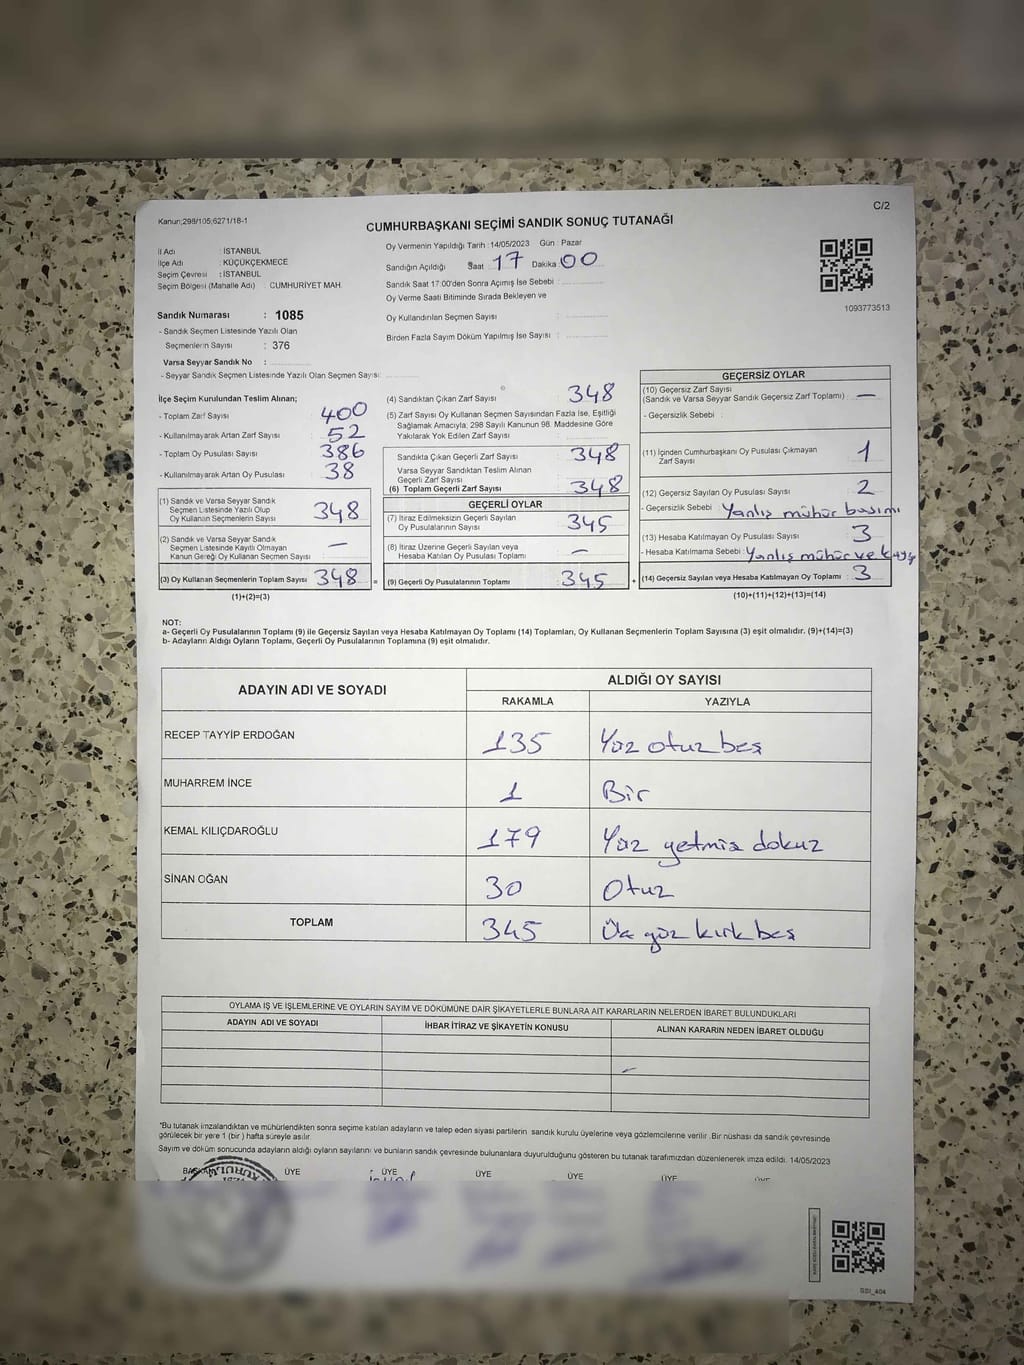 Kanun;298/105,6271/18-1
C/2
CUMHURBAŞKANI SEÇİMİ SANDIK SONUÇ TUTANAĞI
İl Adı : İSTANBUL
İlçe Adı : KÜÇÜKÇEKMECE
Seçim Çevresi : İSTANBUL
Seçim Bölgesi (Mahalle Adı) CUMHURİYET MAH.
Sandık Numarası : 1085
- Sandık Seçmen Listesinde Yazılı Olan
Seçmenlerin Sayısı : 376
Varsa Seyyar Sandık No :
- Seyyar Sandık Seçmen Listesinde Yazılı Olan Seçmen Sayısı:
Oy Vermenin Yapıldığı Tarih :14/05/2023 Gün : Pazar
Sandığın Açıldığı Saat : 17 Dakika : 00
Sandık Saat 17:00'den Sonra Açımış İse Sebebi :
Oy Verme Saati Bitiminde Sırada Bekleyen ve
Oy Kullandırılan Seçmen Sayısı :
Birden Fazla Sayım Döküm Yapılmış İse Sayısı :
1093773513
İlçe Seçim Kurulundan Teslim Alınan;
- Toplam Zarf Sayısı : 400
- Kullanılmayarak Artan Zarf Sayısı : 52
- Toplam Oy Pusulası Sayısı : 386
- Kullanılmayarak Artan Oy Pusulası : 38
(1) Sandık ve Varsa Seyyar Sandık
Seçmen Listesinde Yazılı Olup
Oy Kullanan Seçmenlerin Sayısı : 348
(2) Sandık ve Varsa Seyyar Sandık
Seçmen Listesinde Kayıtlı Olmayan
Kanun Gereği Oy Kullanan Seçmen Sayısı : —
(3) Oy Kullanan Seçmenlerin Toplam Sayısı : 348 =
(1)+(2)=(3)
(4) Sandıktan Çıkan Zarf Sayısı : 348
(5) Zarf Sayısı Oy Kullanan Seçmen Sayısından Fazla İse, Eşitliği
Sağlamak Amacıyla, 298 Sayılı Kanunun 98. Maddesine Göre
Yakılarak Yok Edilen Zarf Sayısı :
Sandıkta Çıkan Geçerli Zarf Sayısı : 348
Varsa Seyyar Sandıktan Teslim Alınan
Geçerli Zarf Sayısı :
(6) Toplam Geçerli Zarf Sayısı : 348
GEÇERLİ OYLAR
(7) İtiraz Edilmeksizin Geçerli Sayılan
Oy Pusulalarının Sayısı : 345
(8) İtiraz Üzerine Geçerli Sayılan veya
Hesaba Katılan Oy Pusulası Sayısı : —
(9) Geçerli Oy Pusulalarının Toplamı : 345 +
GEÇERSİZ OYLAR
(10) Geçersiz Zarf Sayısı
(Sandık ve Varsa Seyyar Sandık Geçersiz Zarf Toplamı) : —
- Geçersizlik Sebebi :
(11) İçinden Cumhurbaşkanı Oy Pusulası Çıkmayan
Zarf Sayısı : 1
(12) Geçersiz Sayılan Oy Pusulası Sayısı : 2
- Geçersizlik Sebebi : Yanlış mühür basımı
(13) Hesaba Katılmayan Oy Pusulası Sayısı : 3
- Hesaba Katılmama Sebebi : Yanlış mühür ve
(14) Geçersiz Sayılan veya Hesaba Katılmayan Oy Toplamı : 3
(10)+(11)+(12)+(13)=(14)
NOT:
a- Geçerli Oy Pusulalarının Toplamı (9) ile Geçersiz Sayılan veya Hesaba Katılmayan Oy Toplamı (14) Toplamları, Oy Kullanan Seçmenlerin Toplam Sayısına (3) eşit olmalıdır. (9)+(14)=(3)
b- Adayların Aldığı Oyların Toplamı, Geçerli Oy Pusulalarının Toplamına (9) eşit olmalıdır.
ADAYIN ADI VE SOYADI
ALDIĞI OY SAYISI
RAKAMLA YAZIYLA
RECEP TAYYİP ERDOĞAN 135 Yüz otuz beş
MUHARREM İNCE 1 Bir
KEMAL KILIÇDAROĞLU 179 Yüz yetmiş dokuz
SİNAN OĞAN 30 Otuz
TOPLAM 345 Üç yüz kırk beş
OYLAMA İŞ VE İŞLEMLERİNE VE OYLARIN SAYIM VE DÖKÜMÜNE DAİR ŞİKAYETLERLE BUNLARA AİT KARARLARIN NELERDEN İBARET BULUNDUKLARI
ADAYIN ADI VE SOYADI İHBAR İTİRAZ VE ŞİKAYETİN KONUSU ALINAN KARARIN NEDEN İBARET OLDUĞU
*Bu tutanak imzalandıktan ve mühürlendikten sonra seçime katılan adayların ve talep eden siyasi partilerin sandık kurulu üyelerine veya gözlemcilerine verilir. Bir nüshası da sandık çevresinde
görülecek bir yere 1 (bir ) hafta süreyle asılır.
Sayım ve döküm sonucunda adayların aldığı oyların sayılarını ve bunların sandık çevresinde bulunanlara duyurulduğunu gösteren bu tutanak tarafımızdan düzenlenerek imza edildi. 14/05/2023
ÜYE ÜYE ÜYE ÜYE ÜYE
GSI_404